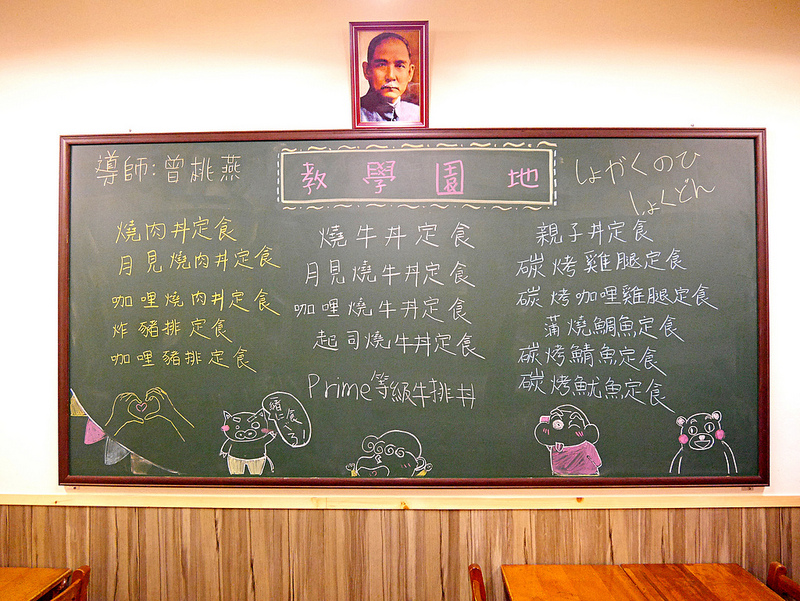 導師:曾桃燕
教學園地
しょがくのひ
しょくどん
燒肉丼定食
月見燒肉丼定食
咖哩燒肉丼定食
炸豬排定食
咖哩豬排定食
燒牛丼定食
月見燒牛丼定食
咖哩燒牛丼定食
起司燒牛丼定食
Prime等級牛排丼
親子丼定食
碳烤雞腿定食
碳烤咖哩雞腿定食
蒲燒鯛魚定食
碳烤鯖魚定食
碳烤魷魚定食